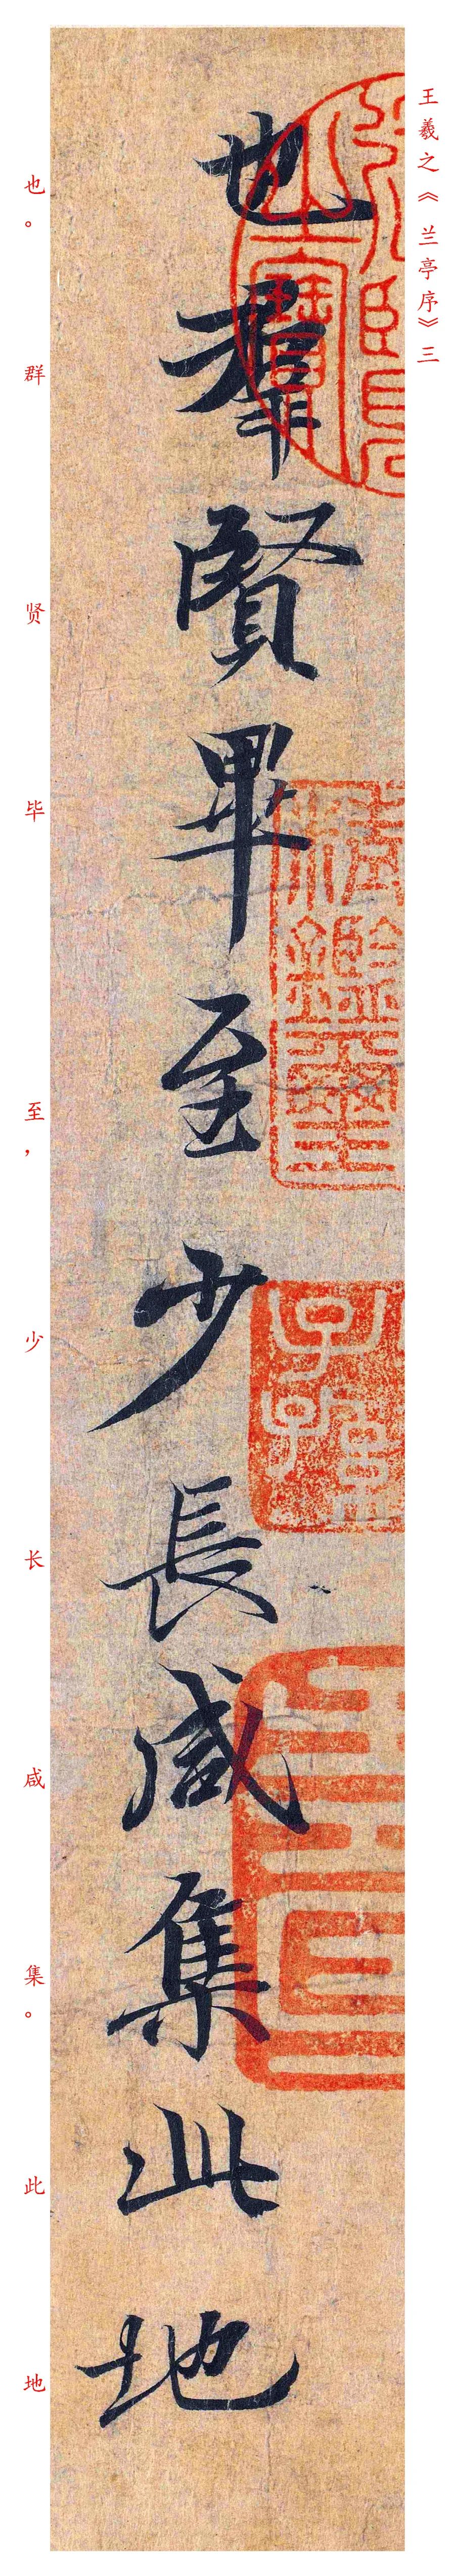 王羲之《兰亭序》三
也羣賢畢至少長咸集此地
也。群贤毕至，少长咸集。此地